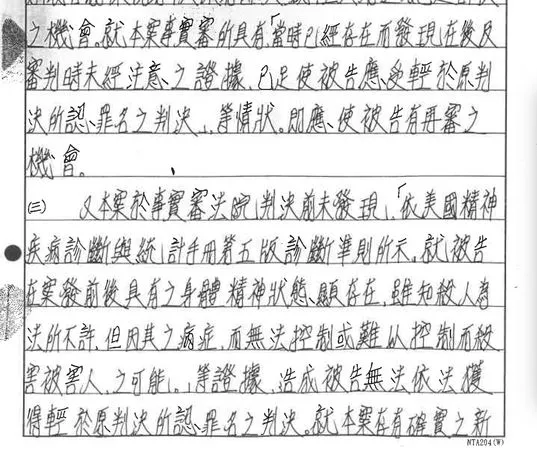 之機會。就本案事實審所具有「當時已經存在而發現在後及
審判時未經注意、之證據、已足使被告應、受輕於原判
決所認、罪名之判決」、等情狀。即應、使被告有再審之
機會。
(三) 又本案於事實審法院」判決前未發現」、「依美國精神
疾病診斷與統計手冊第五版診斷準則所示、就被告
在案發前後具有之身體精神狀態、顯存在、雖知殺人為
法所不許、但因其之病症、而無法控制或難以控制而殺
害被害人、之可能」。、等證據、造成被告無法依法獲
得輕於原判決所認、罪名之判決。就本案存在有確實之新
NTA204(W)